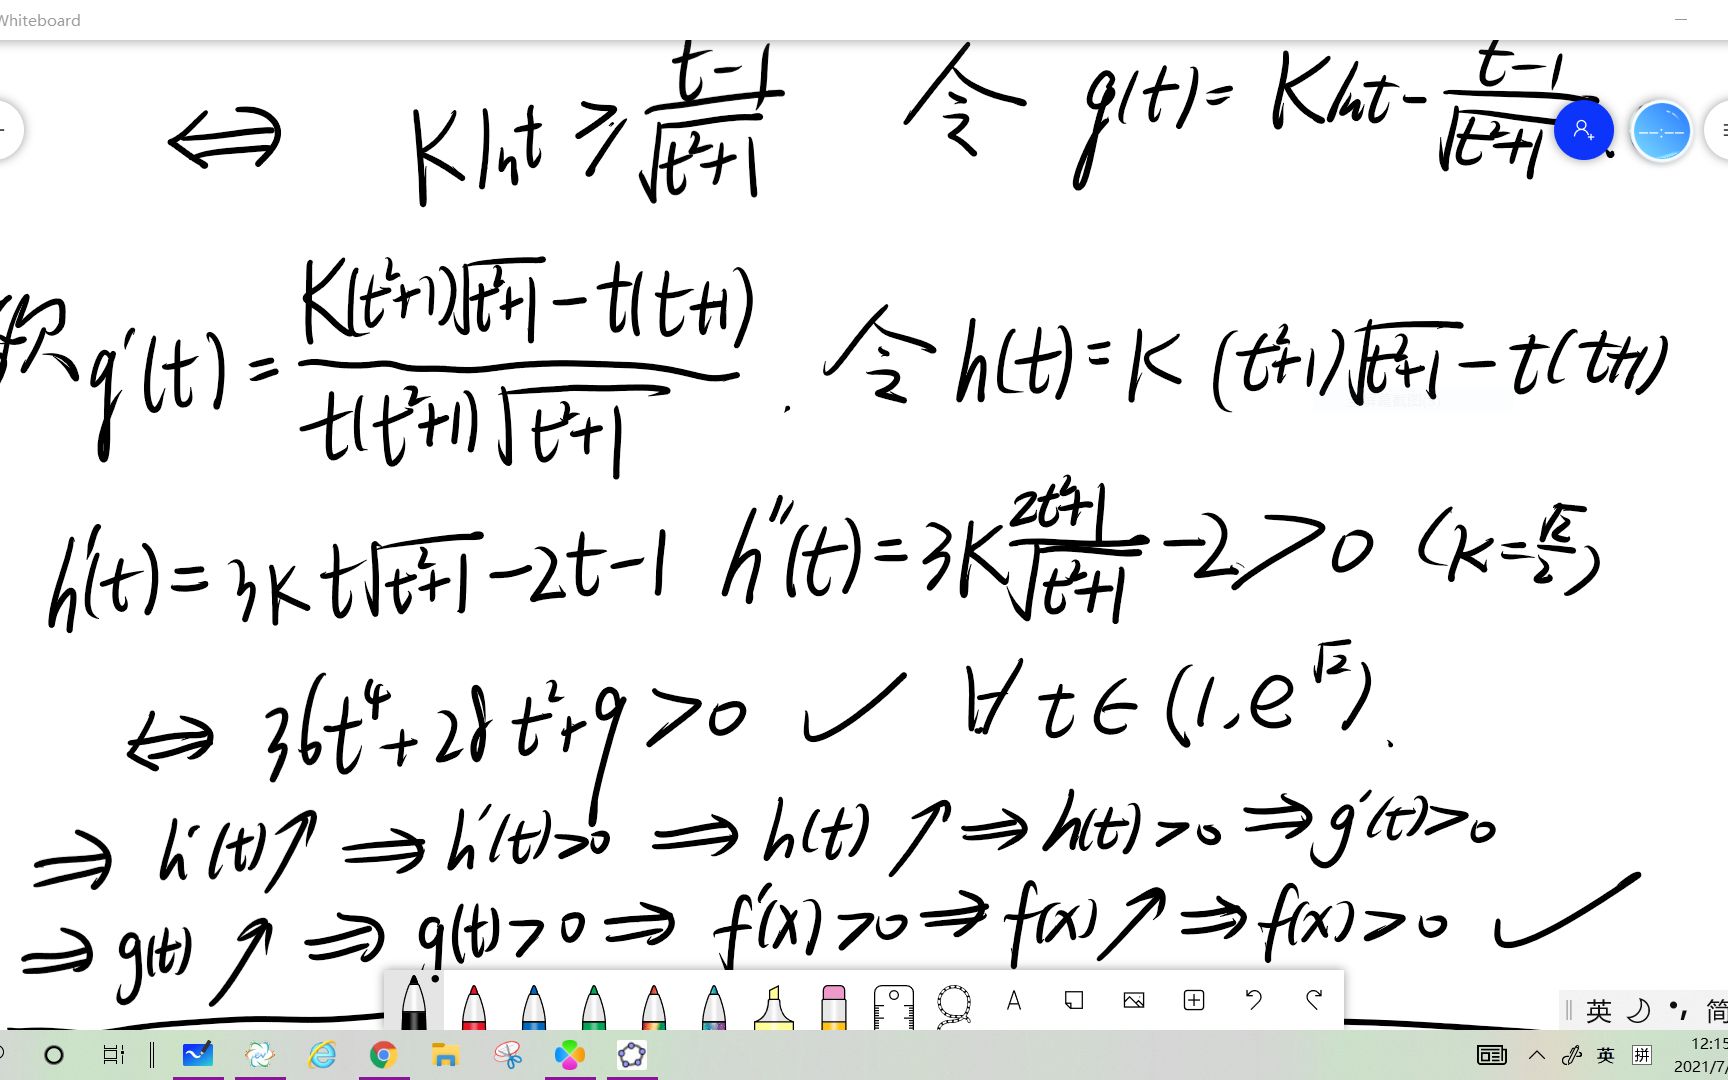 Whiteboard
⇔ K ln t ≥ (t-1)/√(t²+1) 令 g(t) = K ln t - (t-1)/√(t²+1) .
g'(t) = (K(t²+1)√(t²+1) - t(t+1))/(t(t²+1)√(t²+1)) . 令 h(t) = K (t²+1)√(t²+1) - t(t+1)
h'(t) = 3Kt√(t²+1) - 2t - 1 h''(t) = 3K (2t²+1)/√(t²+1) - 2 > 0 (K = √2/2)
⇔ 36t⁴ + 28t² + 9 > 0 ✓ ∀ t ∈ (1, e^√2) .
⇒ h'(t) ↗ ⇒ h'(t) > 0 ⇒ h(t) ↗ ⇒ h(t) > 0 ⇒ g'(t) > 0
⇒ g(t) ↗ ⇒ g(t) > 0 ⇒ f'(x) > 0 ⇒ f(x) ↗ ⇒ f(x) > 0 ✓
英 简
英 拼 12:15
2021/7/